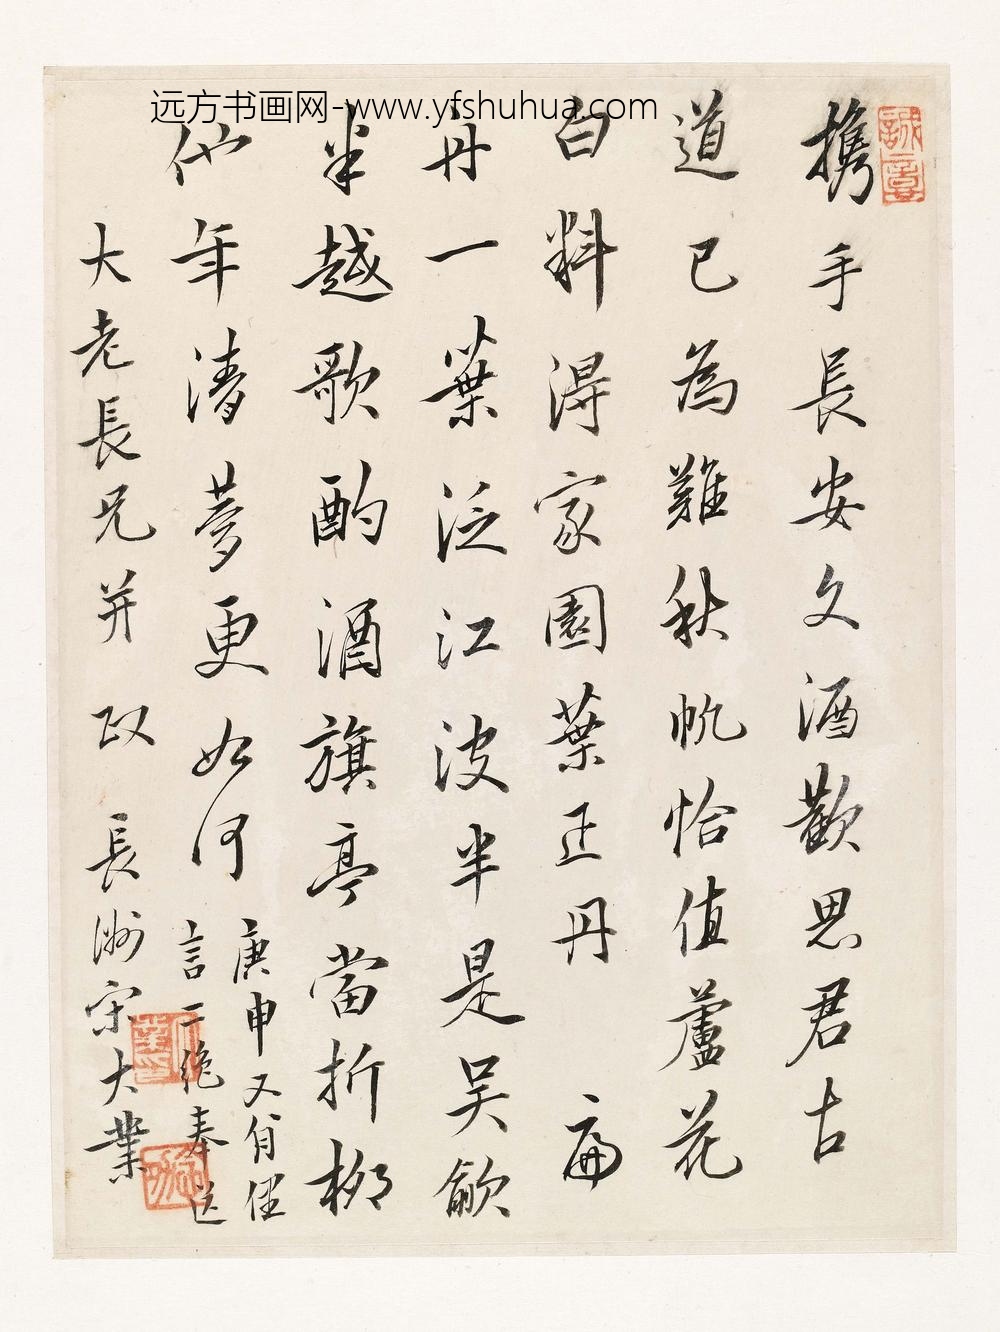 远方书画网-www.yfshuhua.com
誠意
攜手長安文酒歡思君古
道已為難秋帆恰值蘆花
白料得家園葉正丹 扁
舟一葉泛江波半是吳歈
半越歌酌酒旗亭當折柳
他年清夢更如何
庚申又月俚
言二絕奉送
大老長兄并政 長洲宋大業